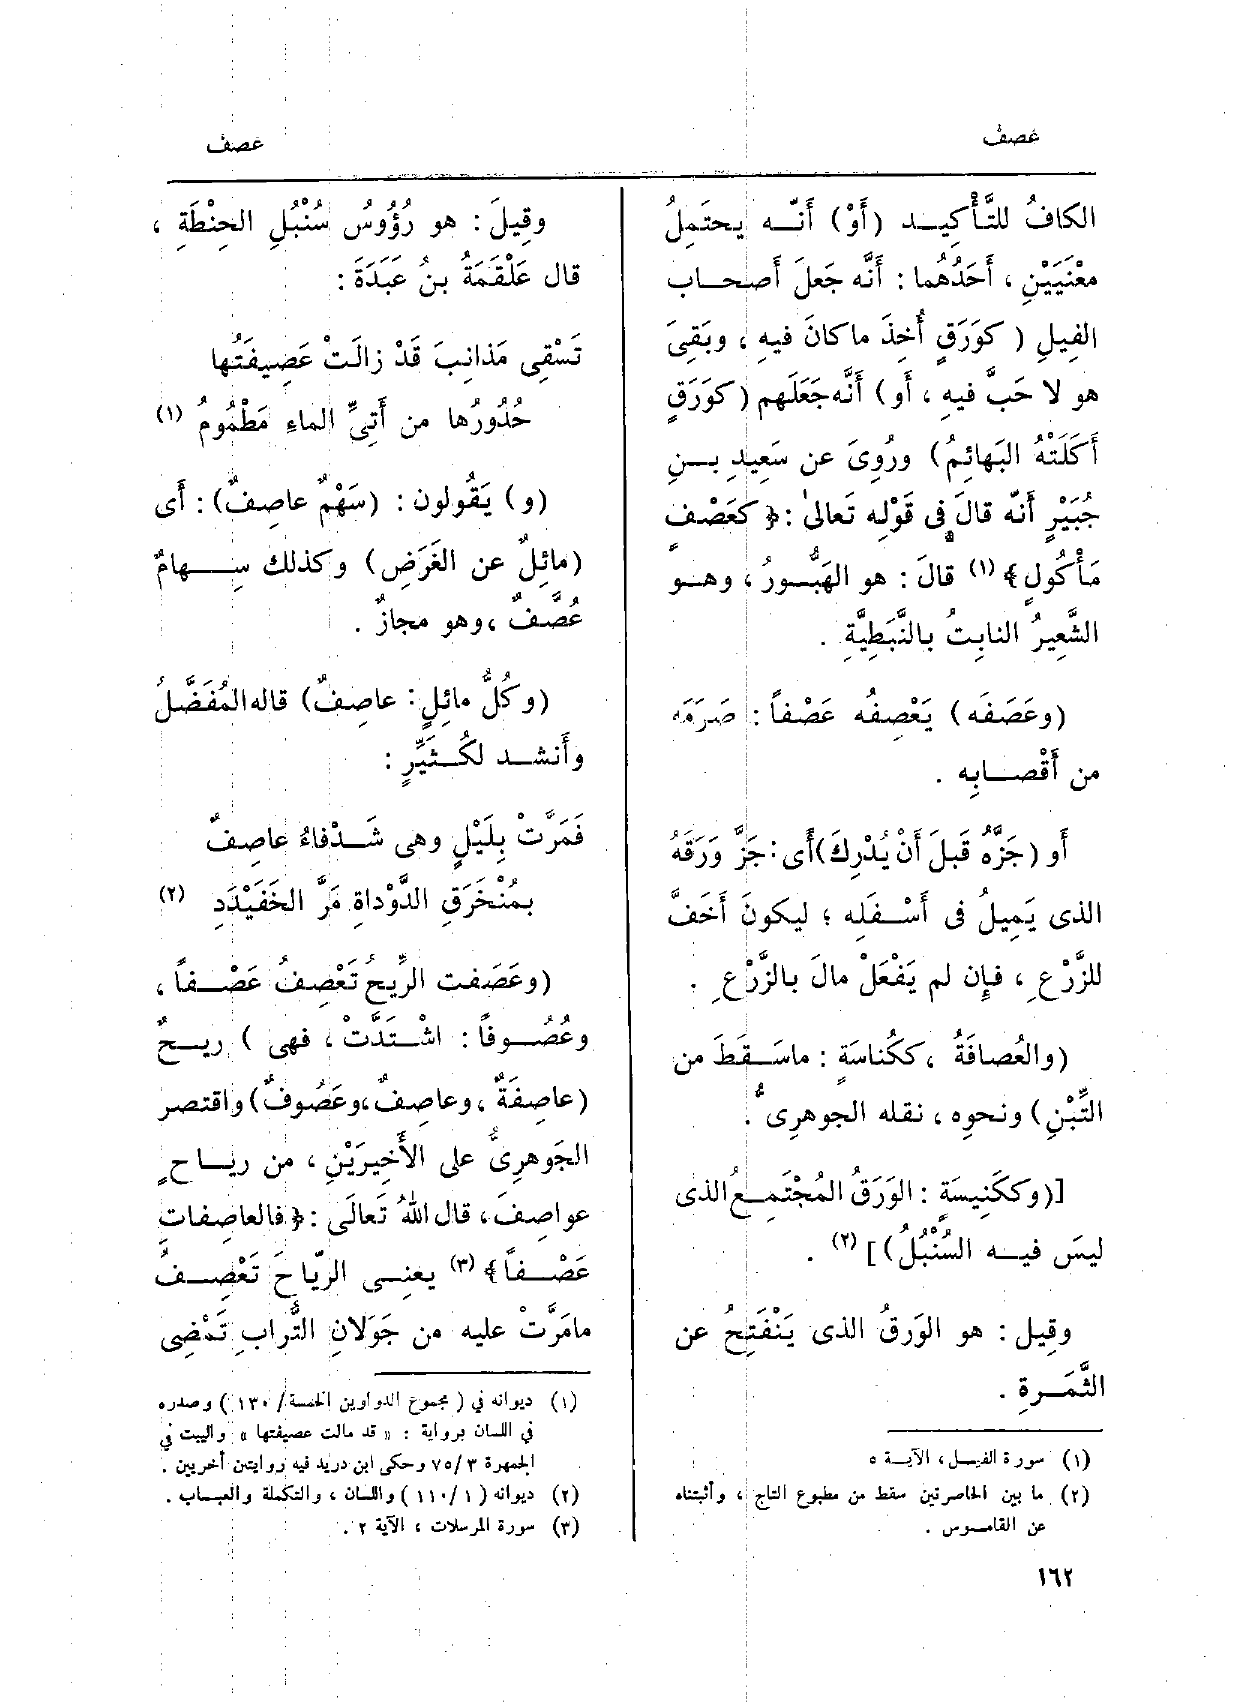 عصف
عصف
الكافُ للتَّأْكيـد (أَوْ) أَنّـه يحتَمِلُ
معْنَيَيْنِ ، أَحَدُهُما : أَنَّه جَعلَ أَصحـاب
الفِيلِ ( كوَرَقٍ أُخِذَ ما كانَ فيهِ ، وبَقِىَ
هو لا حَبَّ فيهِ ، أَو) أَنَّه جَعَلَهم (كوَرَقٍ
أَكلَتْهُ البَهائِمُ) ورُوِىَ عن سَعِيدِ بـنِ
جُبَيْرٍ أَنَّه قالَ فِى قَوْلِه تَعالىٰ :﴿ كعَصْفٍ
مَأْكُولٍ﴾ (١) قالَ : هو الهَبُّورُ ، وهـو
الشَّعِيرُ النابِتُ بالنَّبَطِيَّةِ .
(وعَصَفَه) يَعْصِفُه عَصْفاً : صَرَمَه
من أَقْصـابِه .
أَو (جَزَّه قَبلَ أَنْ يُدْرِكَ) أَى : جَزَّ وَرَقَهُ
الذى يَمِيلُ فى أَسْـفَلِه ؛ ليكونَ أَخَفَّ
للزَّرْعِ ، فإِن لم يَفْعَلْ مالَ بالزَّرْعِ .
(والعُصافَةُ ، ككُناسَةٍ : ماسَـقَطَ من
التِّبْنِ) ونحوِه ، نقله الجوهرِىُّ .
[(وككَنِيسَةٍ : الوَرَقُ المُجْتَمِـعُ الذى
ليسَ فيـه السُّنْبُلُ)] (٢) .
وقِيل : هو الوَرقُ الذى يَنْفَتِحُ عن
الثَّمَـرةِ .
(١) سورة الفيـل ، الآيـة ٥
(٢) ما بين الحاصرتين سقط من مطبوع التاج ، وأثبتناه
عن القامـوس .
وقِيلَ : هو رُؤُوسُ سُنْبُلِ الحِنْطَةِ ،
قال عَلْقَمَةُ بنُ عَبَدَةَ :
تَسْقِى مَذانِبَ قَدْ زالَتْ عَصِيفَتُها
حُدُورُها من أَتِىِّ الماءِ مَطْمُومُ (١)
(و) يَقُولون : (سَهْمٌ عاصِفٌ) : أَى
(مائِلٌ عن الغَرَضِ) وكذلك سِـهامٌ
عُصَّفٌ ، وهو مجازٌ .
(وكُلُّ مائِلٍ : عاصِفٌ) قاله المُفَضَّلُ
وأَنشـد لكُـثَيِّرٍ :
فَمَرَّتْ بِلَيْلٍ وهى شَـدْفاءُ عاصِفٌ
بمُنْخَرَقِ الدَّوْداةِ مَرَّ الخَفَيْدَدِ (٢)
(وعَصَفت الرِّيحُ تَعْصِفُ عَصْـفاً ،
وعُصُـوفاً : اشْـتَدَّتْ ، فهى ) رِيـحٌ
(عاصِفَةٌ ، وعاصِفٌ ، وعَصُوفٌ) واقتصر
الجَوهرِىُّ على الأَخِيرَيْنِ ، من رِيـاحٍ
عواصِفَ ، قال اللهُ تَعالَى :﴿ فالعاصِفاتِ
عَصْـفاً﴾ (٣) يعنِـى الرِّياحَ تَعْصِـفُ
مامَرَّتْ عليه من جَوَلانِ التُّرابِ تَمْضِى
(١) ديوانه في ( مجموع الدواوين الخمسة/ ١٣٠ ) وصدره
في اللسان برواية : « قد مالت عصيفتها » والبيت في
الجمهرة ٣/ ٧٥ وحكى ابن دريد فيه روايتين أخريين .
(٢) ديوانه ( ١/ ١١٠ ) واللسان ، والتكملة والعباب .
(٣) سورة المرسلات ، الآية ٢ .
١٦٢